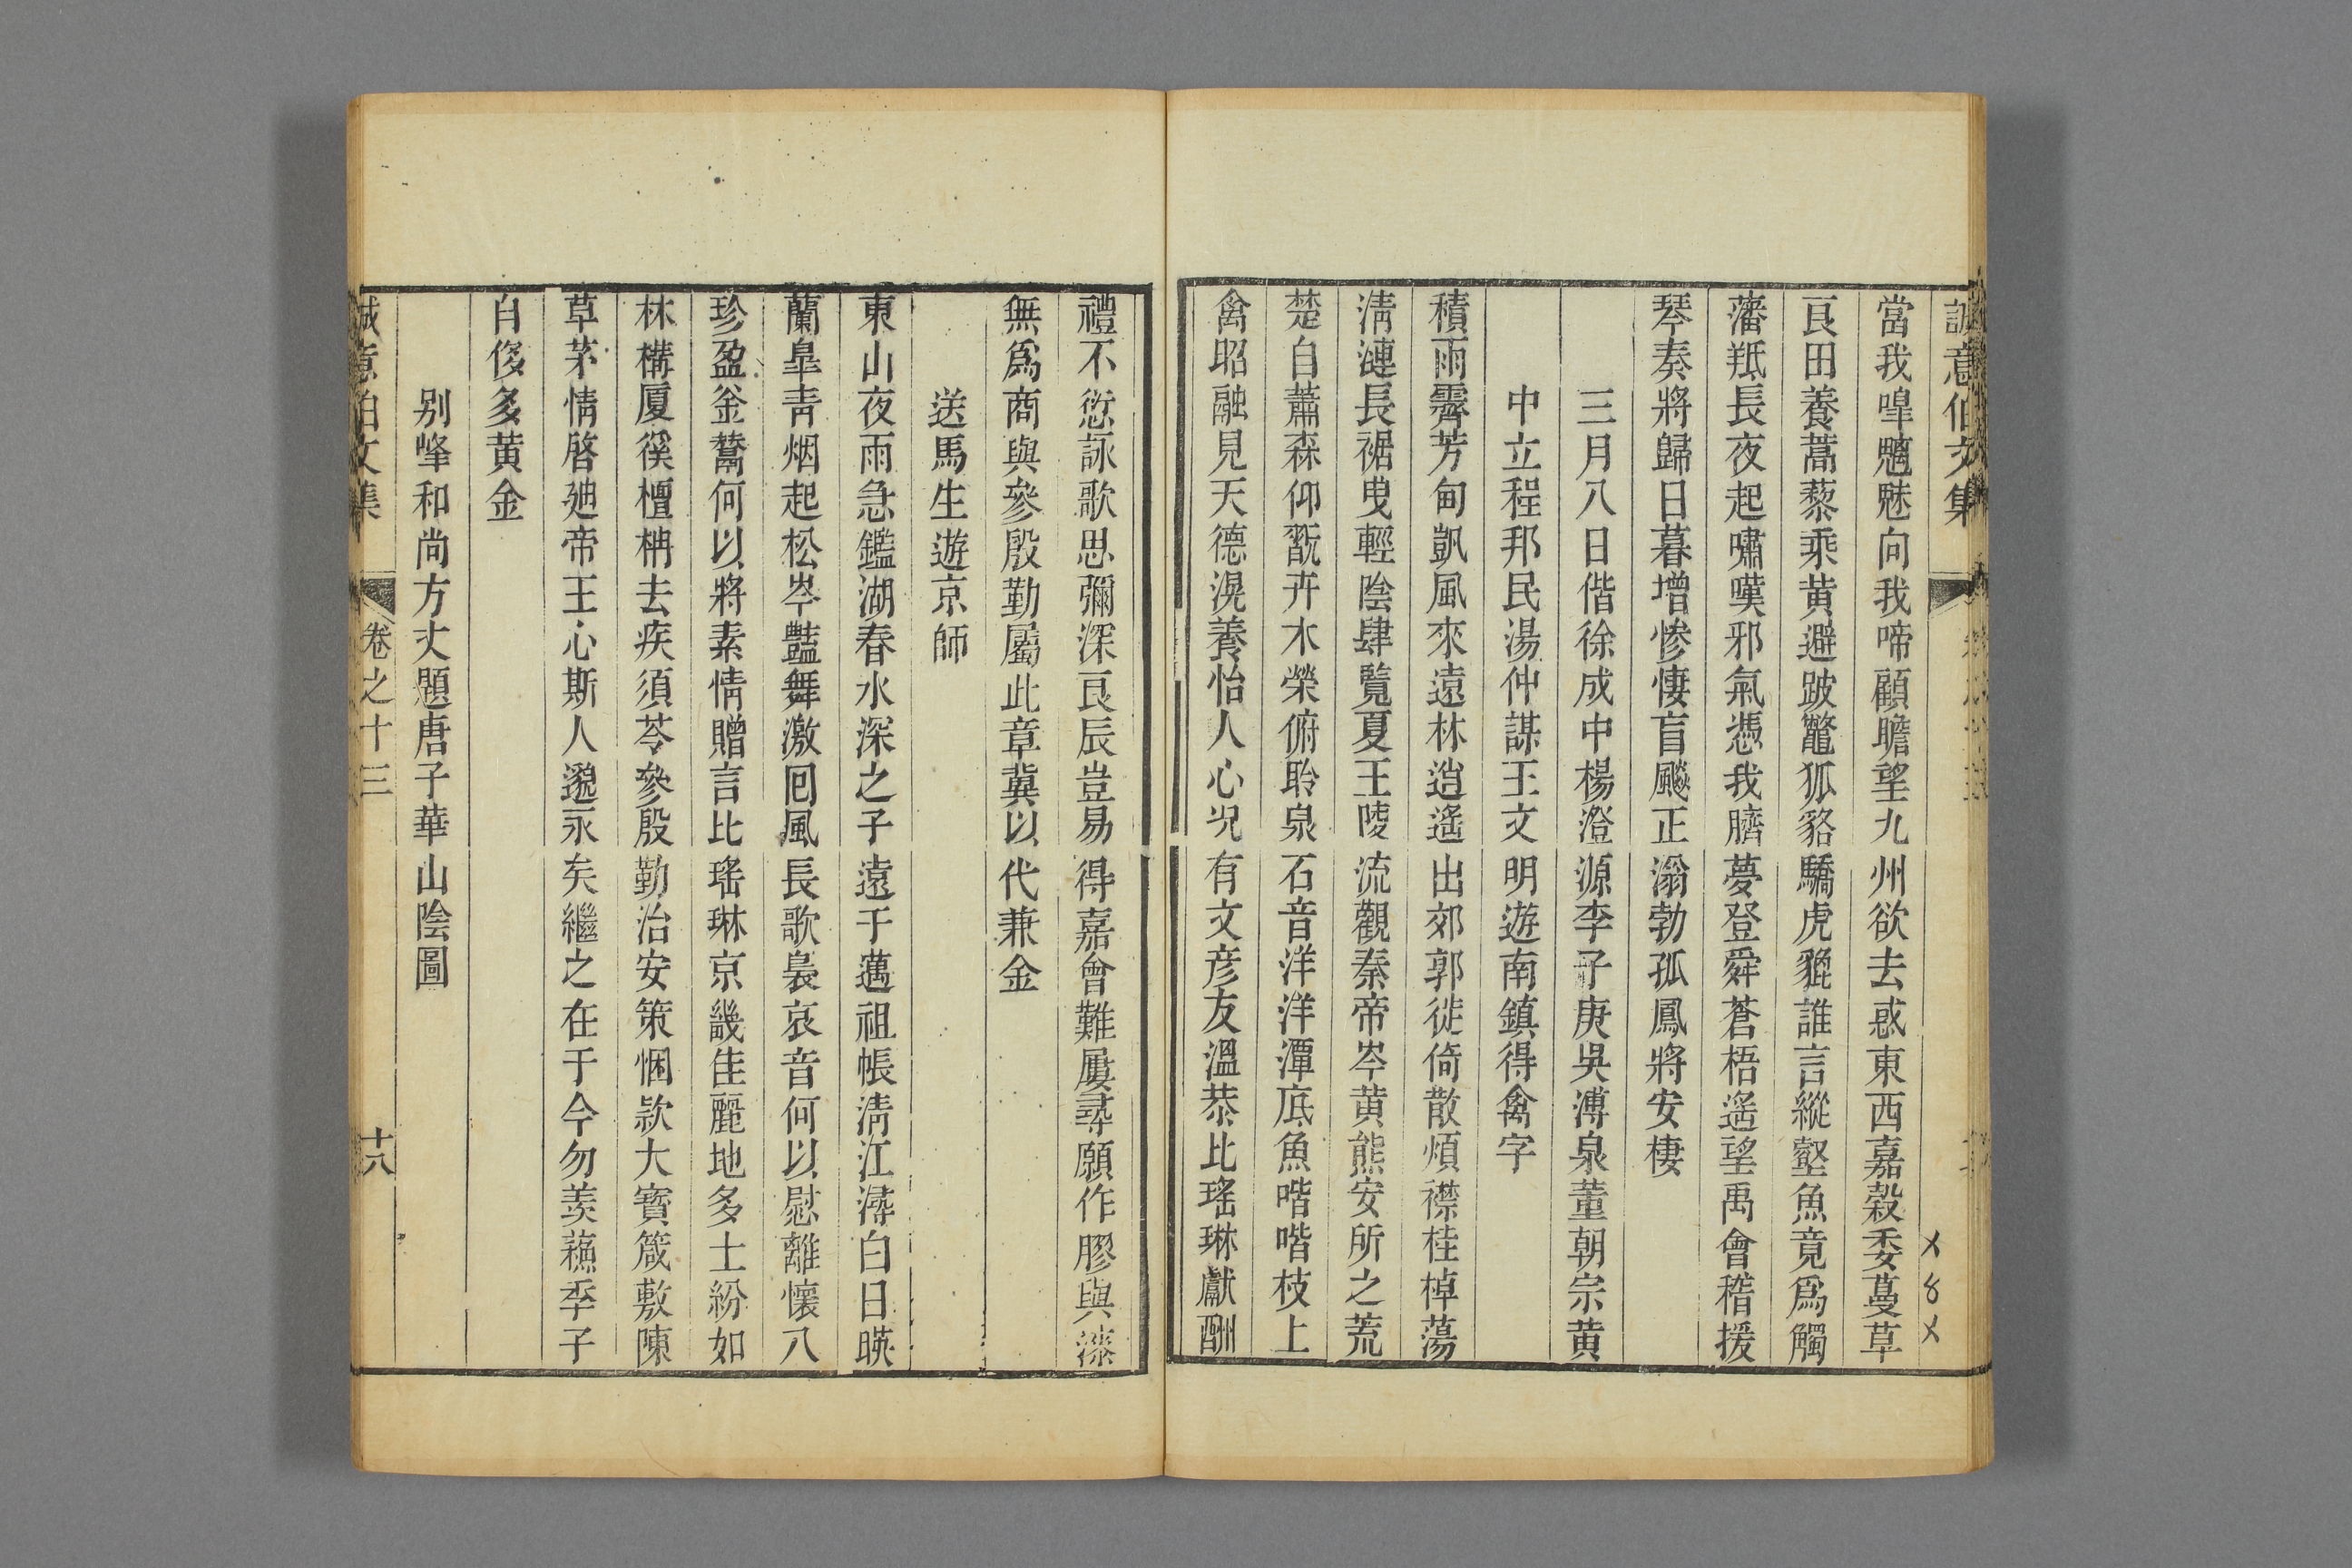 誠意伯文集
當我嘷魑魅向我啼顧瞻望九州欲去惑東西嘉穀委蔓草
良田養蒿藜乘黄避跛鼈狐貉驕虎貔誰言縱壑魚竟爲觸
藩羝長夜起嘯嘆邪氣憑我臍夢登舜蒼梧遥望禹會稽援
琴奏將歸日暮增慘悽盲飈正滃勃孤鳳將安棲
三月八日偕徐成中楊澄源李子庚吳溥泉董朝宗黄
中立程邦民湯仲謀王文明遊南鎮得禽字
積雨霽芳甸凱風來遠林逍遙出郊郭徙倚散煩襟桂棹蕩
淸漣長裾曳輕陰肆覽夏王陵流觀秦帝岑黄熊安所之荒
楚自蕭森仰翫卉木榮俯聆泉石音洋洋潭底魚喈喈枝上
禽昭融見天德滉養怡人心况有文彦友溫恭比瑤琳獻酬
禮不愆詠歌思彌深良辰豈易得嘉會難屢尋願作膠與漆
無爲商與參殷勤屬此章冀以代兼金
送馬生遊京師
東山夜雨急鑑湖春水深之子遠于邁祖帳淸江潯白日暎
蘭臯靑烟起松岑豔舞激囘風長歌裊哀音何以慰離懷八
珍盈釡鬵何以將素情贈言比瑤琳京畿佳麗地多士紛如
林構厦徯檀柟去疾須苓參殷勤治安策悃款大寳箴敷陳
草茅情啓廸帝王心斯人邈永矣繼之在于今勿羨蘓季子
白侈多黄金
别峰和尚方丈題唐子華山陰圖
誠意伯文集
卷之十三
十八